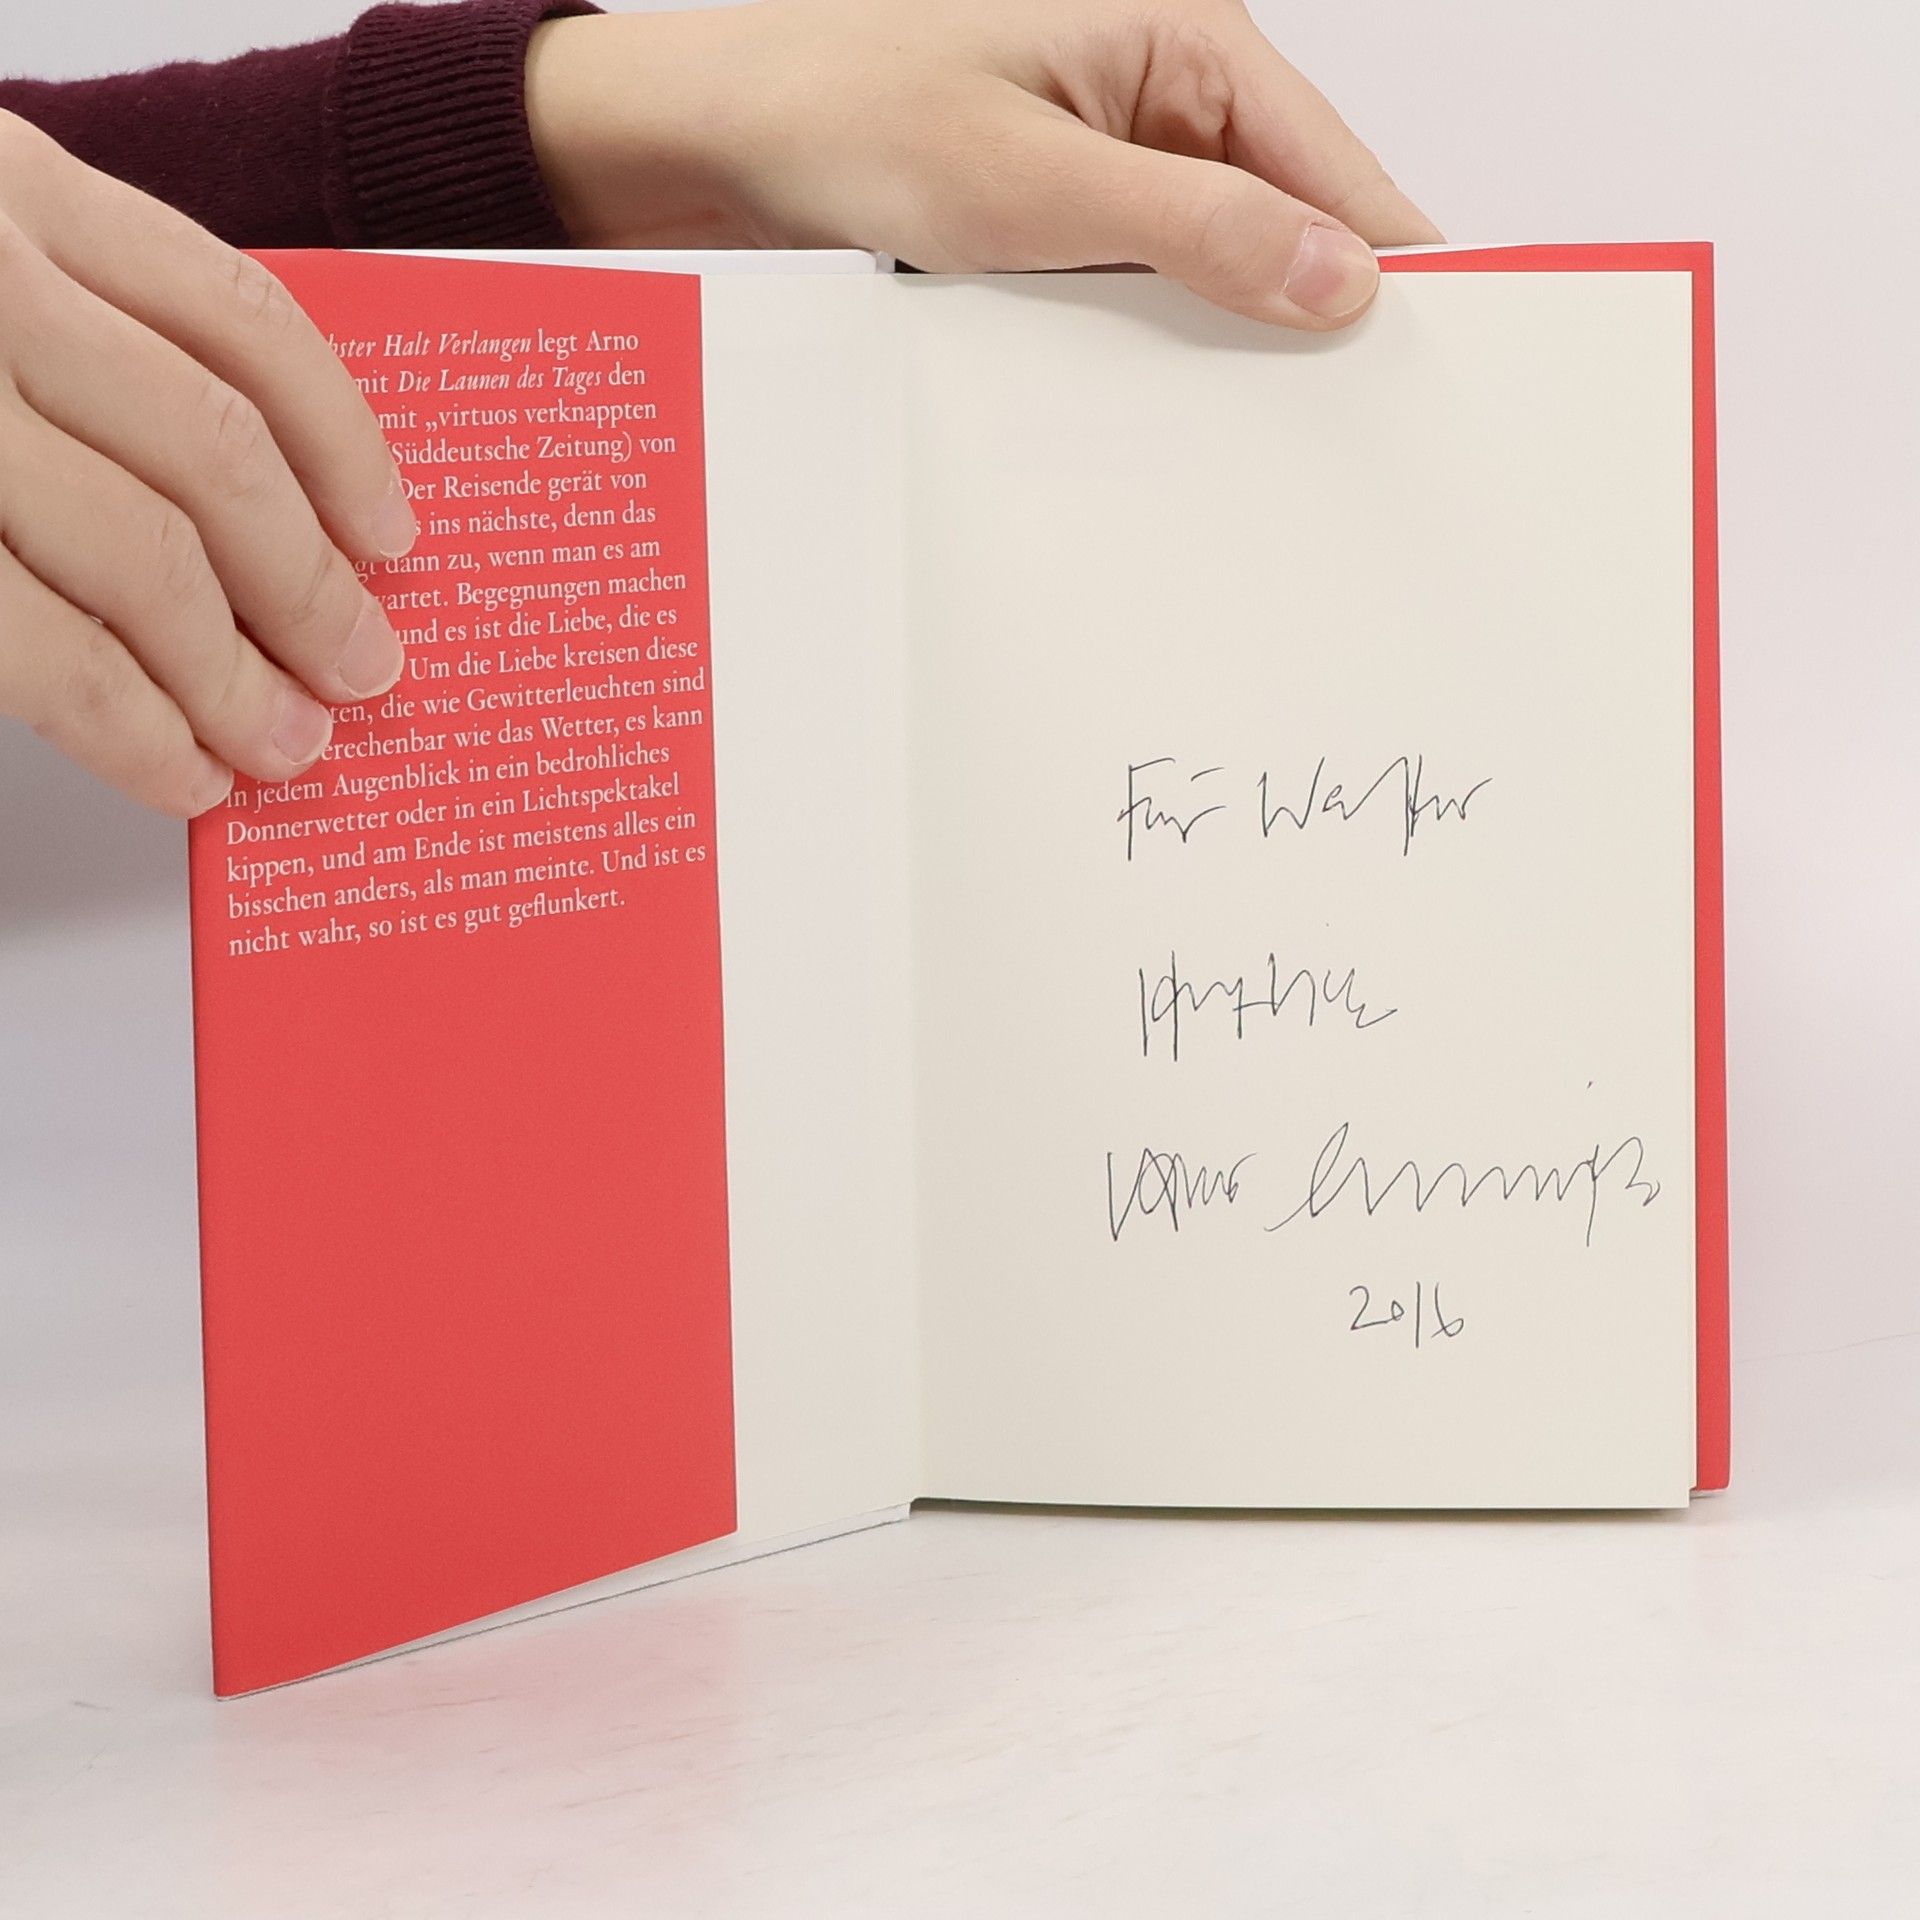 Halt Verlangen legt Arno
mit Die Launen des Tages den
mit „virtuos verknappten
(Süddeutsche Zeitung) von
Der Reisende gerät von
ins nächste, denn das
dann zu, wenn man es am
Begegnungen machen
und es ist die Liebe, die es
Um die Liebe kreisen diese
die wie Gewitterleuchten sind
wie das Wetter, es kann
in jedem Augenblick in ein bedrohliches
Donnerwetter oder in ein Lichtspektakel
kippen, und am Ende ist meistens alles ein
bisschen anders, als man meinte. Und ist es
nicht wahr, so ist es gut geflunkert.
Für Walter
herzlich
Arno Camenisch
2016